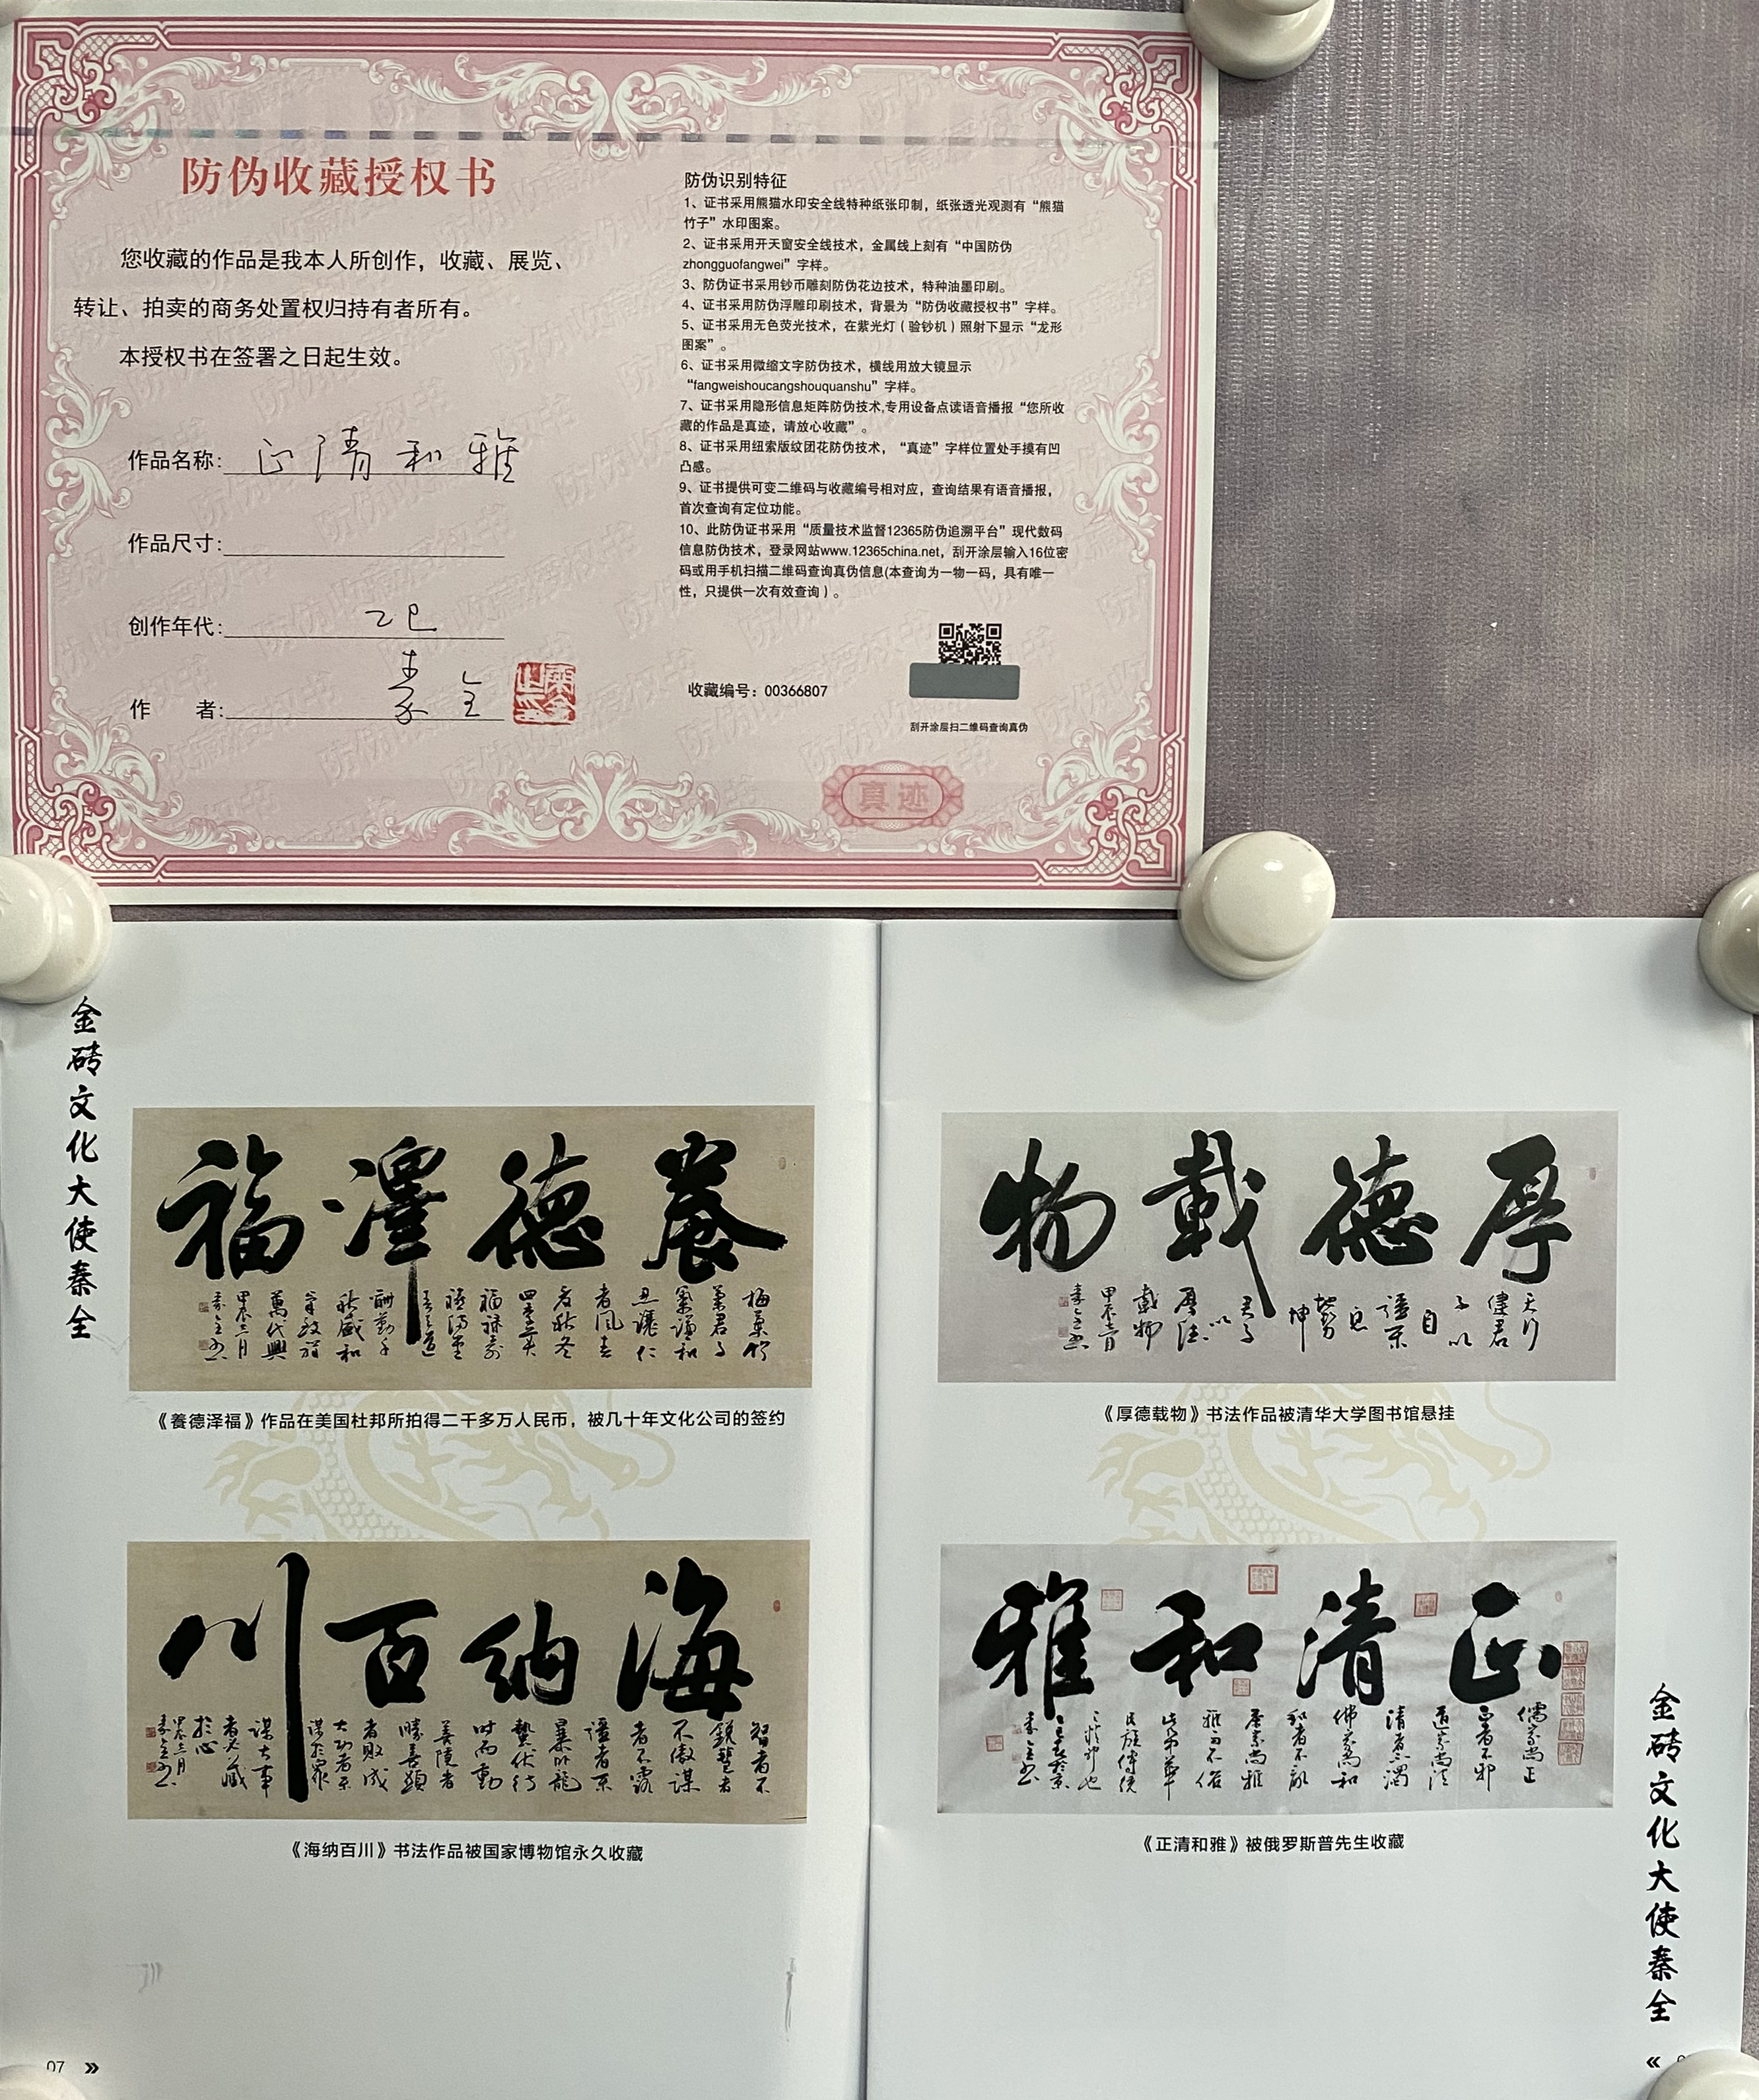 防伪收藏授权书
您收藏的作品是我本人所创作，收藏、展览、
转让、拍卖的商务处置权归持有者所有。
本授权书在签署之日起生效。
作品名称：正清和雅
作品尺寸：
创作年代：乙巳
作 者：秦全
防伪识别特征
1、证书采用熊猫水印安全线特种纸张印制，纸张透光观测有“熊猫
竹子”水印图案。
2、证书采用开天窗安全线技术，金属线上刻有“中国防伪
zhongguofangwei”字样。
3、防伪证书采用钞币雕刻防伪花边技术，特种油墨印刷。
4、证书采用防伪浮雕印刷技术，背景为“防伪收藏授权书”字样。
5、证书采用无色荧光技术，在紫光灯（验钞机）照射下显示“龙形
图案”。
6、证书采用微缩文字防伪技术，横线用放大镜显示
“fangweishoucangshouquanshu”字样。
7、证书采用隐形信息矩阵防伪技术,专用设备点读语音播报“您所收
藏的作品是真迹，请放心收藏”。
8、证书采用纽索版纹团花防伪技术，“真迹”字样位置处手摸有凹
凸感。
9、证书提供可变二维码与收藏编号相对应，查询结果有语音播报，
首次查询有定位功能。
10、此防伪证书采用“质量技术监督12365防伪追溯平台”现代数码
信息防伪技术，登录网站www.12365china.net，刮开涂层输入16位密
码或用手机扫描二维码查询真伪信息(本查询为一物一码，具有唯一
性，只提供一次有效查询）。
收藏编号：00366807
刮开涂层扫二维码查询真伪
真迹
金砖文化大使秦全
養德澤福
梅蘭竹
菊君子
氣謙和
忍讓仁
者風春
夏秋冬
四季美
福祿壽
萬代興
甲辰二月
秦全书
《養德泽福》作品在美国杜邦所拍得二千多万人民币，被几十年文化公司的签约
海纳百川
智者不
銳慧者
不傲謀
者不露
强者不
暴卧龍
蟄伏待
时而動
善隐者
勝喜顯
者敗成
大功者不
謀於眾
謀大事
者必藏
於心
甲辰二月
秦全书
《海纳百川》书法作品被国家博物馆永久收藏
07
厚德載物
天行
健君
子以
自
强不
息
地势
坤
君子
以
厚德
載物
甲辰二月
秦全书
《厚德载物》书法作品被清华大学图书馆悬挂
正清和雅
儒家尚正
正者不邪
道家尚清
清者不濁
佛家尚和
和者不亂
秦全书
《正清和雅》被俄罗斯普先生收藏
金砖文化大使秦全